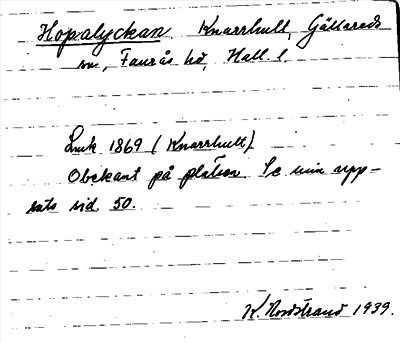 Hopalyckan Knarrhult, Gällareds
sn, Faurås hd, Hall. l.
Lmk 1869 (Knarrhult)
Obekant på platsen. Se min upp-
sats sid. 50.
K. Nordstrand 1939.